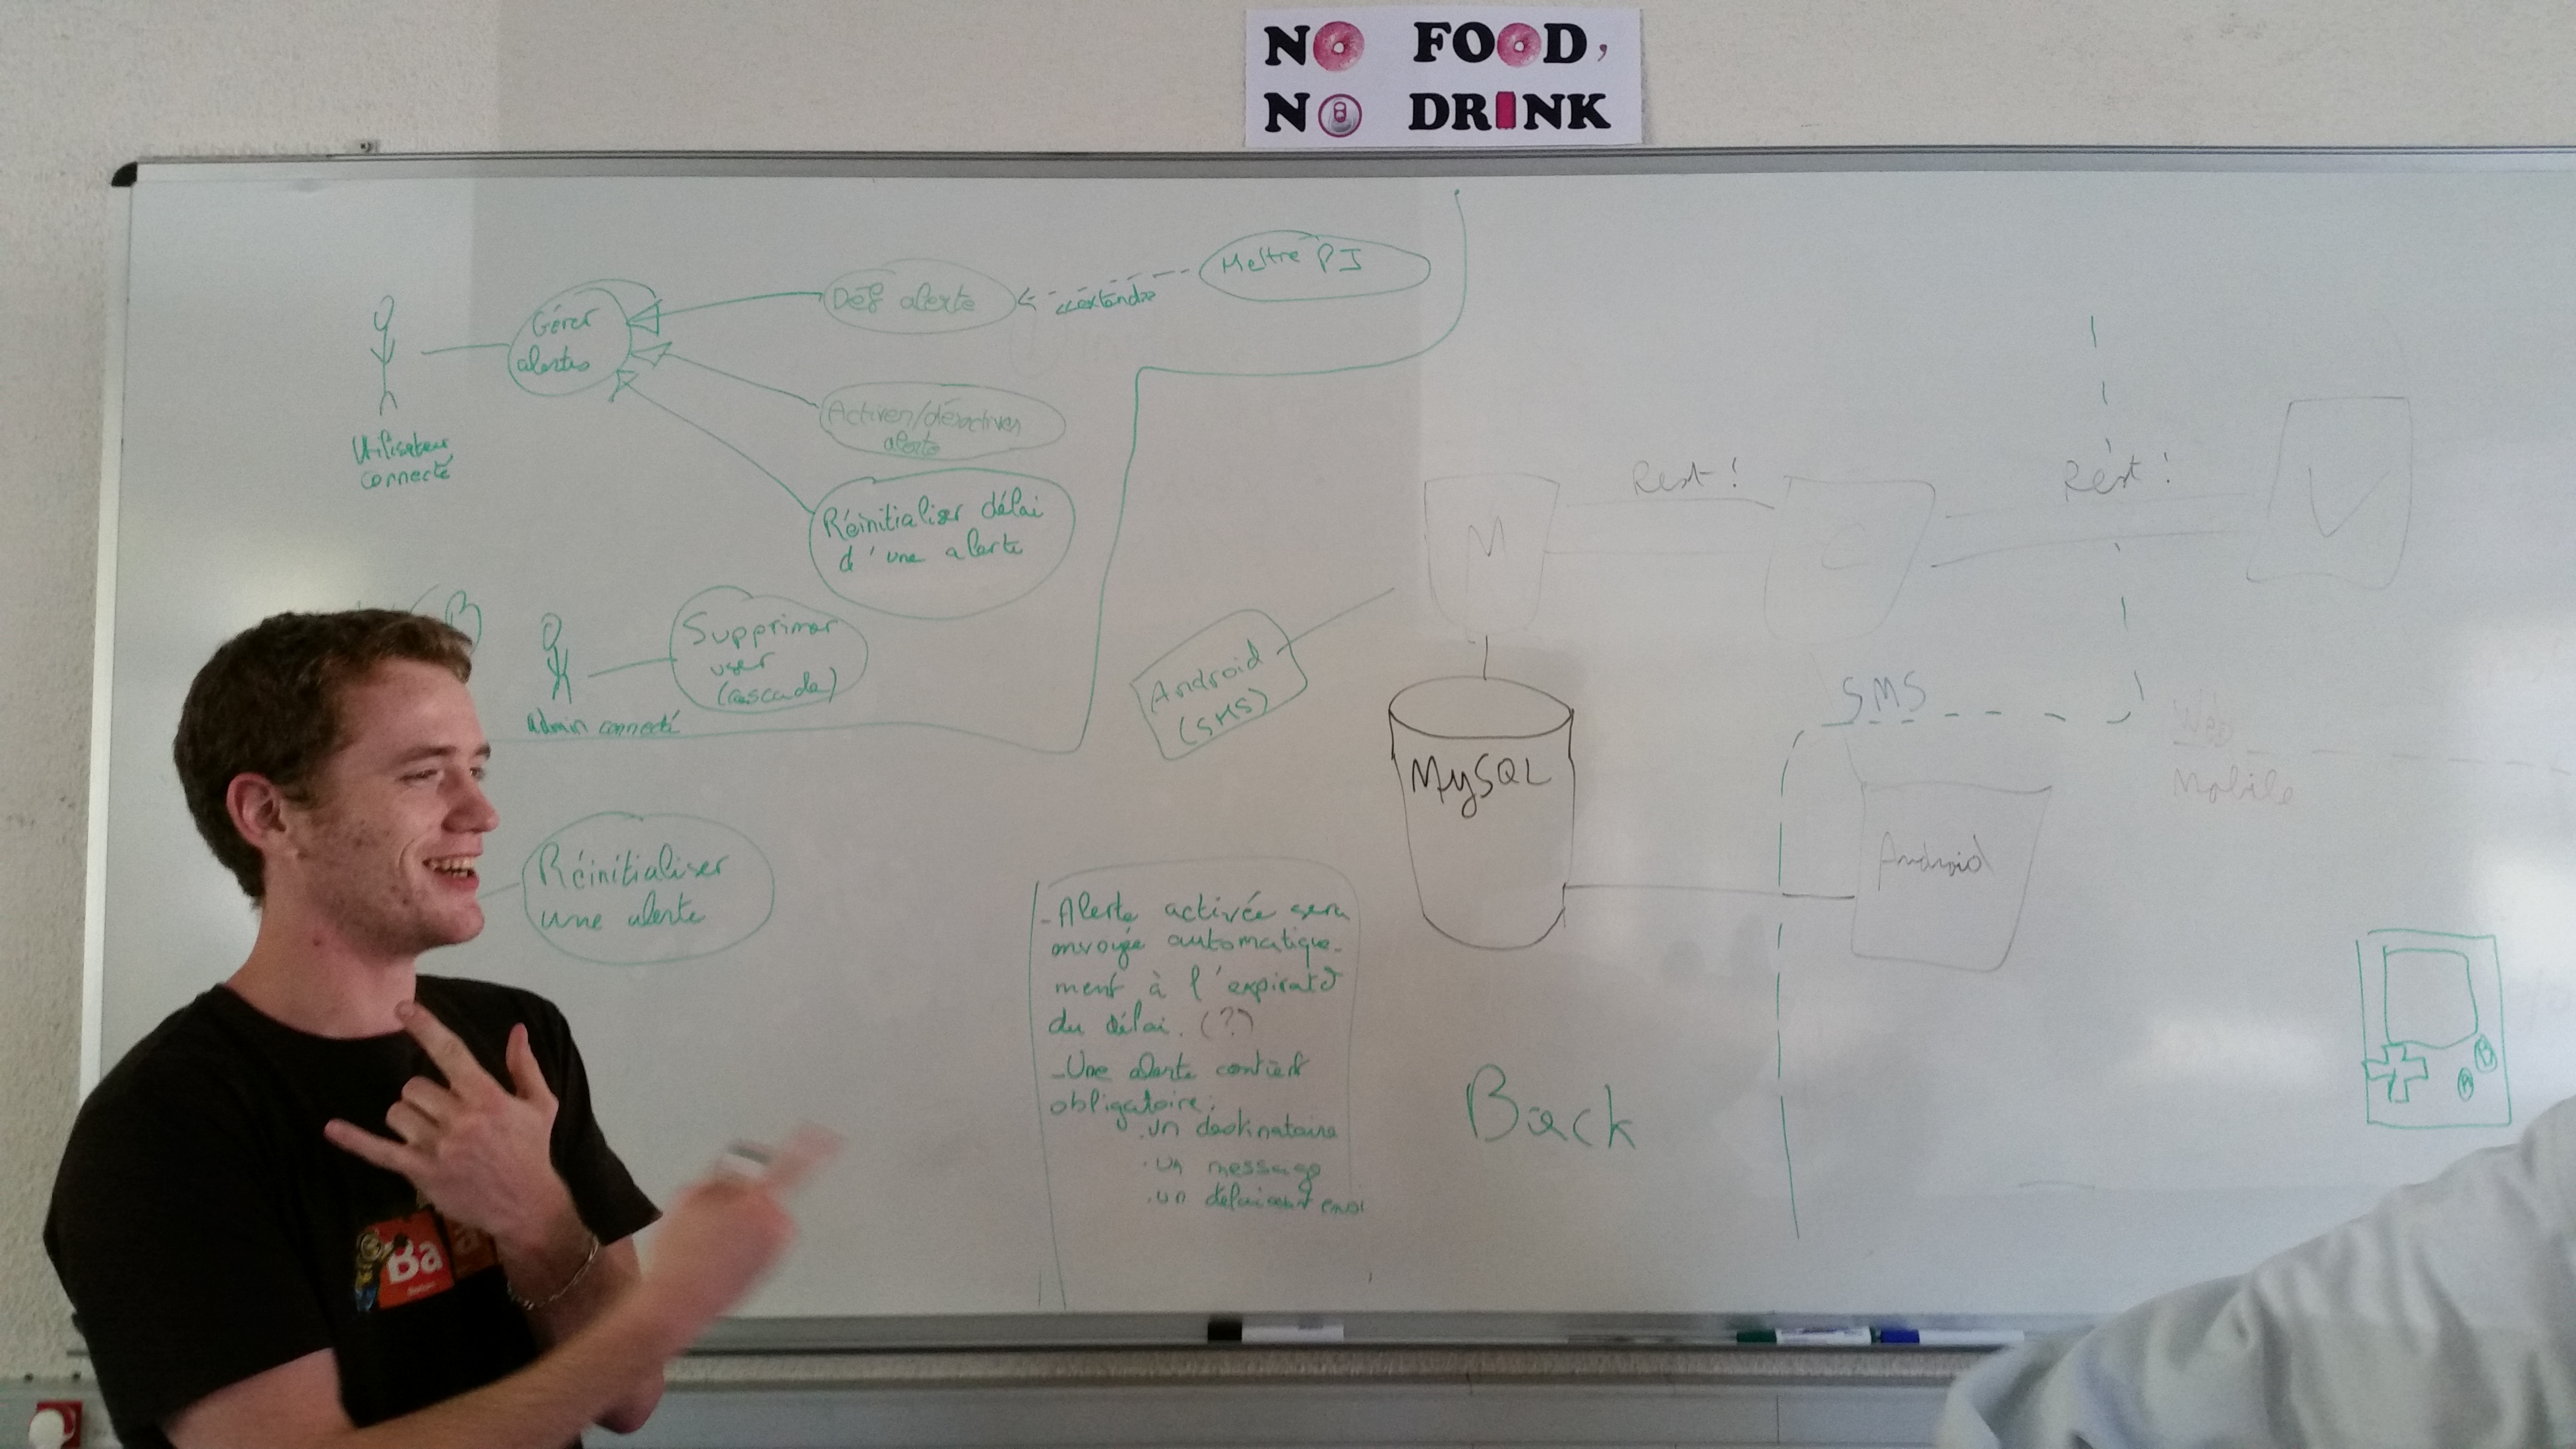 NO FOOD,
NO DRINK
Gérer
alertes
Déf alerte
<<extends>>
Mettre PJ
Utilisateur
connecté
Activer/désactiver
alerte
Réinitialiser délai
d'une alerte
Supprimer
user
(cascade)
admin connecté
Réinitialiser
une alerte
M
Rest!
C
Rest!
V
Android
(SMS)
MySQL
SMS
Web
Mobile
Android
- Alerte activée sera
envoyée automatique-
ment à l'expirat°
du délai. (?)
- Une alerte contient
obligatoire:
. un destinataire
. un message
. un délai avant envoi
Back
B
A
Ba